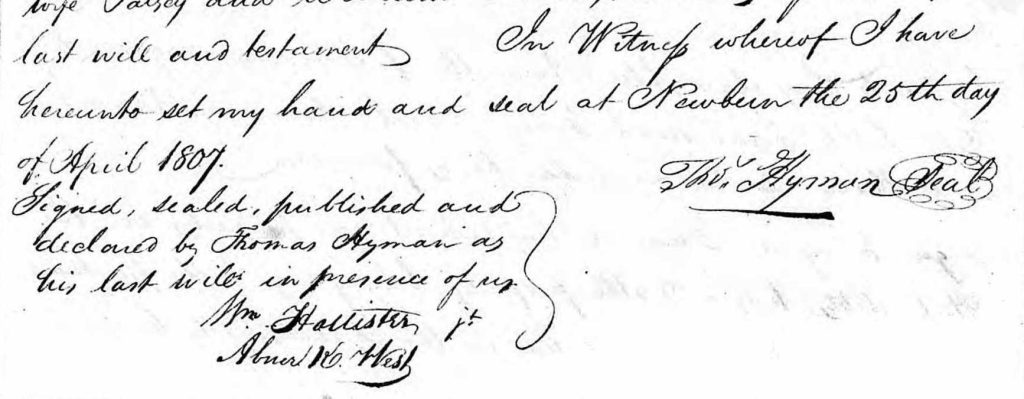 wife Patsey and
last will and testament In Witness whereof I have
hereunto set my hand and seal at Newbern the 25th day
of April 1807.
Thos. Hyman Seal
Signed, sealed, published and
declared by Thomas Hyman as
his last will in presence of us
Wm. Hollister jt.
Abner K. West